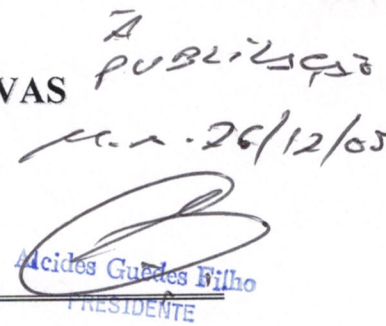 À
PUBLICAÇÃO
VAS
26/12/05
Alcides Guedes Filho
PRESIDENTE